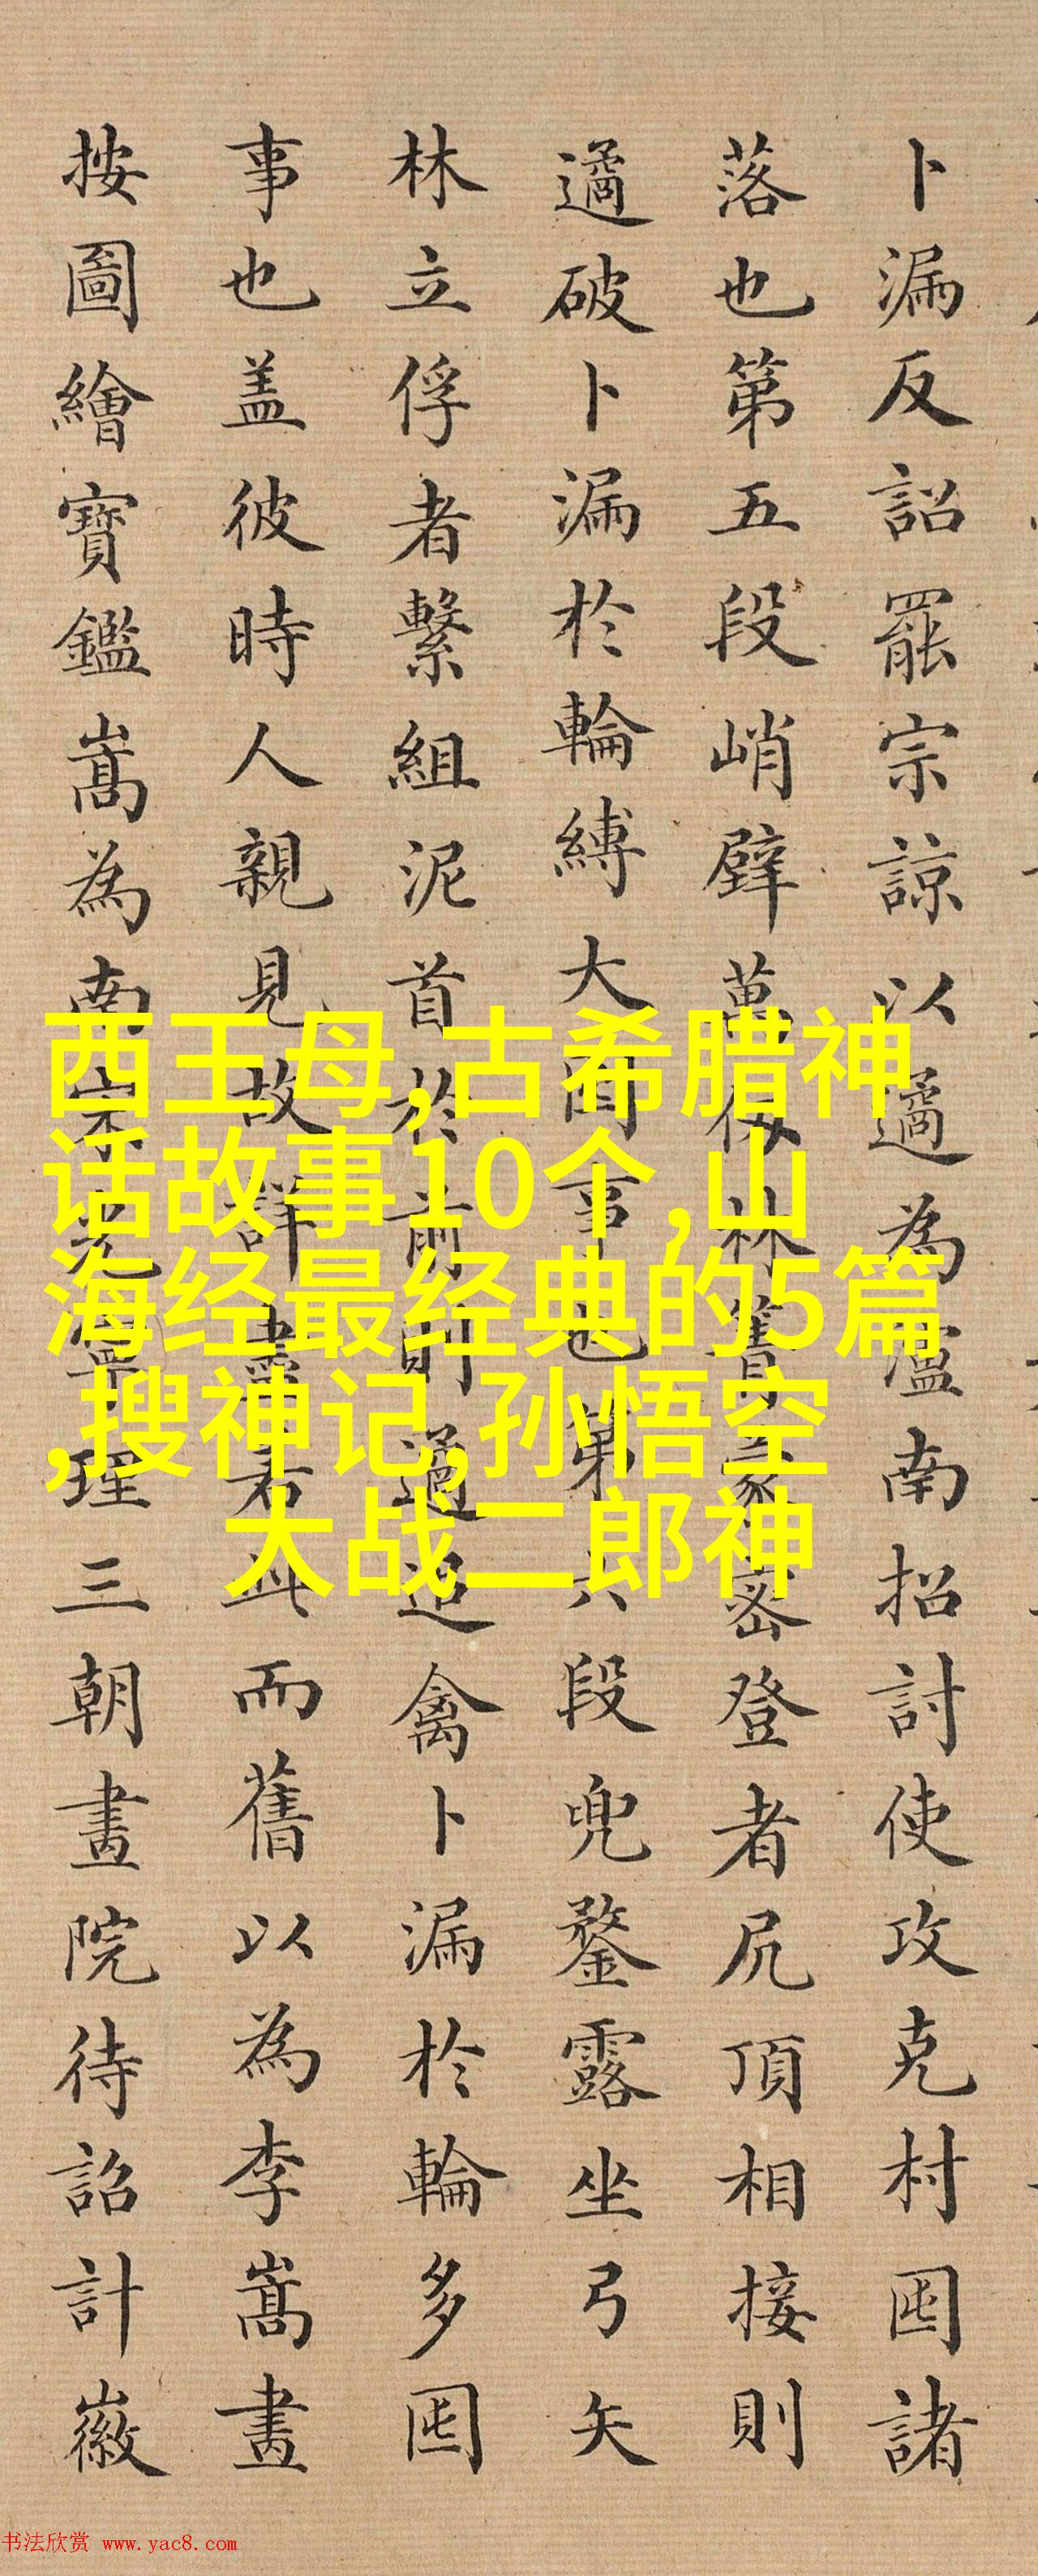 卜漏反詔罷宗諒以遹為瀘南招討使攻克村囤諸
落也第五段峭壁萬仭林箐蒙密登者尻頂相接則
遹破卜漏於輪縛大囤事也第六段兜鍪露坐弓矢
林立俘者繫組泥首於前則遹追禽卜漏於輪多囤
事也盖彼時人親見故詳盡若此而舊以為李嵩畫
按圖繪寶鑑嵩為南宋光寧理三朝畫院待詔計徽
西王母,古希腊神
话故事10个 ,山
海经最经典的5篇
,搜神记,孙悟空
大战二郎神
书法欣赏 www.yac8.com